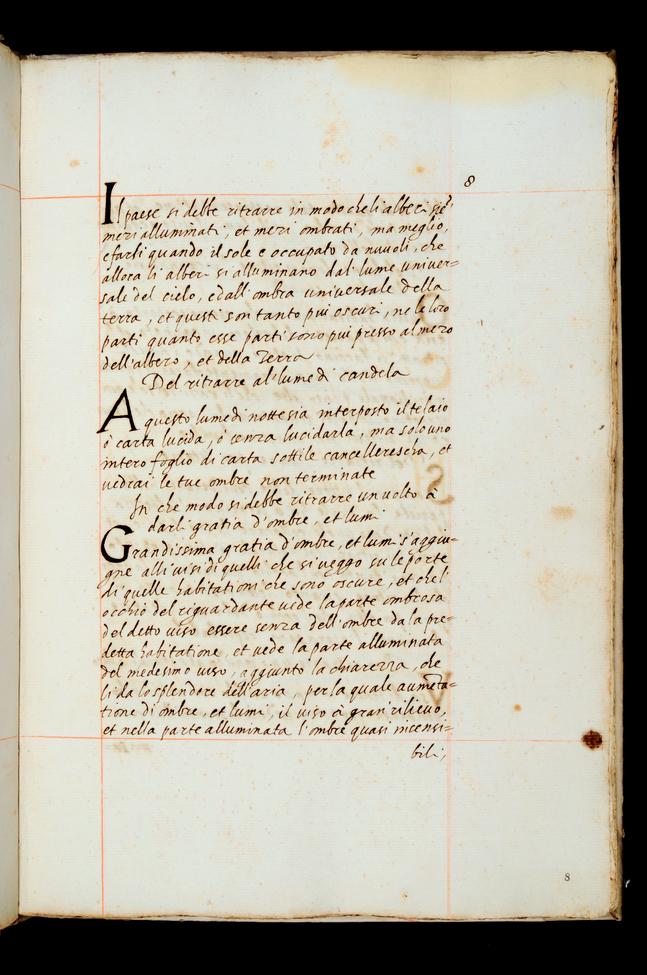 8
Il paese si debbe ritrarre in modo che li alberi siē
mezi alluminati, et mezi ombrati, ma meglio,
e farli quando il sole e occupato da nuvoli, che
allora li alberi si alluminano dal' lume univer=
sale del cielo, e dall'ombra universale della
terra, et questi son tanto piu oscuri, ne le loro
parti quanto esse parti sono piu presso al mezo
dell'albero, et della Terra
Del ritrarre al' lume di candela
A questo lume di notte sia interposto il telaio
ò carta lucida, ò senza lucidarla, ma solo uno
intero foglio di carta sottile cancelleresca, et
vedrai le tue ombre non terminate
In che modo si debbe ritrarre un volto à
darli gratia d'ombre, et lumi
Grandissima gratia d'ombre, et lumi s'aggiu=
gne alli visi di quelli che si veggo su le porte
di quelle habitationi che sono oscure, et che l'
occhio del riguardante vede la parte ombrosa
del detto viso essere senza dell'ombre da la pre=
detta habitatione, et vede la parte alluminata
del medesimo viso, aggiunto la chiarezza, che
li da lo splendore dell'aria, per la quale aumēta=
tione di ombre, et lumi, il viso à gran' rilievo,
et nella parte alluminata l'ombre quasi incensi=
bili,
8